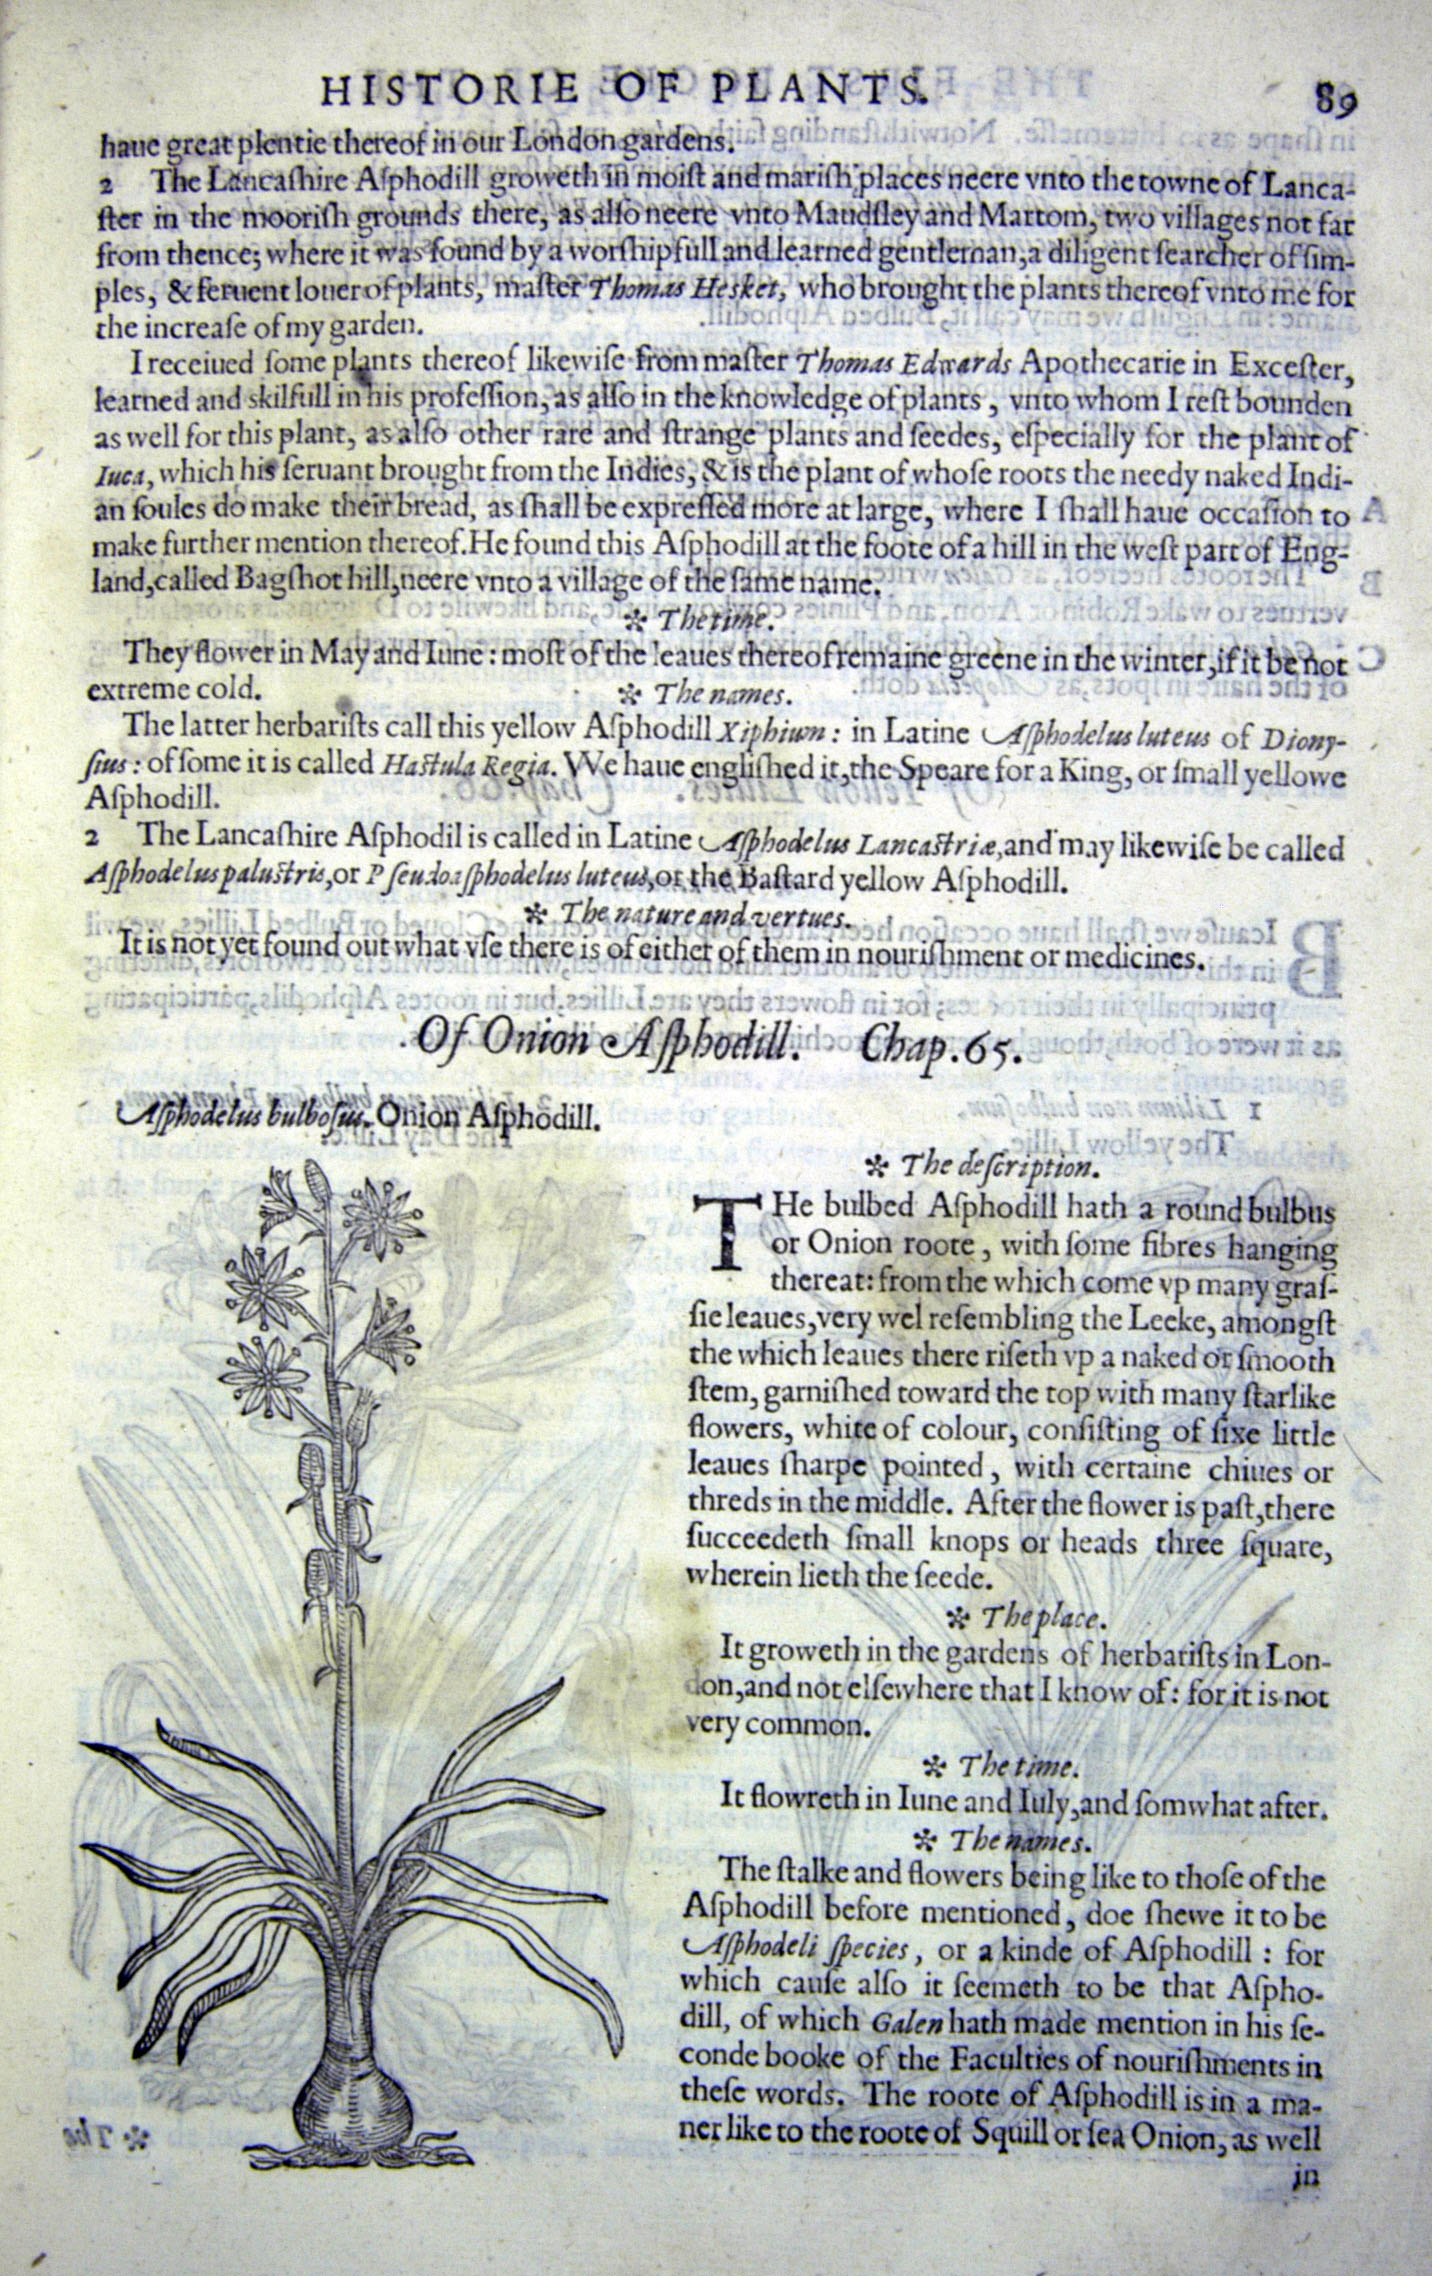 HISTORIE OF PLANTS. 89
haue great plentie thereof in our London gardens.
2 The Lancaſhire Aſphodill groweth in moiſt and mariſh places neere vnto the towne of Lanca-
ſter in the mooriſh grounds there, as alſo neere vnto Maudſley and Martom, two villages not far
from thence; where it was found by a worſhipfull and learned gentleman, a diligent ſearcher of ſim-
ples, & feruent louer of plants, maſter Thomas Hesket, who brought the plants thereof vnto me for
the increaſe of my garden.
I receiued ſome plants thereof likewiſe from maſter Thomas Edwards Apothecarie in Exceſter,
learned and skilfull in his profeſſion, as alſo in the knowledge of plants, vnto whom I reſt bounden
as well for this plant, as alſo other rare and ſtrange plants and ſeedes, eſpecially for the plant of
Iuca, which his ſeruant brought from the Indies, & is the plant of whoſe roots the needy naked Indi-
an ſoules do make their bread, as ſhall be expreſſed more at large, where I ſhall haue occaſion to
make further mention thereof. He found this Aſphodill at the foote of a hill in the weſt part of Eng-
land, called Bagſhot hill, neere vnto a village of the ſame name.
✻ The time.
They flower in May and Iune: moſt of the leaues thereof remaine greene in the winter, if it be not
extreme cold. ✻ The names.
The latter herbariſts call this yellow Aſphodill Xiphium: in Latine Aſphodelus luteus of Diony-
ſius: of ſome it is called Haſtula Regia. We haue engliſhed it, the Speare for a King, or ſmall yellowe
Aſphodill.
2 The Lancaſhire Aſphodil is called in Latine Aſphodelus Lancaſtriæ, and may likewiſe be called
Aſphodelus paluſtris, or Pſeudoaſphodelus luteus, or the Baſtard yellow Aſphodill.
✻ The nature and vertues.
It is not yet found out what vſe there is of either of them in nouriſhment or medicines.
Of Onion Aſphodill. Chap. 65.
Aſphodelus bulboſus. Onion Aſphodill.
✻ The deſcription.
THe bulbed Aſphodill hath a round bulbus
or Onion roote, with ſome fibres hanging
thereat: from the which come vp many graſ-
ſie leaues, very wel reſembling the Leeke, amongſt
the which leaues there riſeth vp a naked or ſmooth
ſtem, garniſhed toward the top with many ſtarlike
flowers, white of colour, conſiſting of ſixe little
leaues ſharpe pointed, with certaine chiues or
threds in the middle. After the flower is paſt, there
ſucceedeth ſmall knops or heads three ſquare,
wherein lieth the ſeede.
✻ The place.
It groweth in the gardens of herbariſts in Lon-
don, and not elſewhere that I know of: for it is not
very common.
✻ The time.
It flowreth in Iune and Iuly, and ſomwhat after.
✻ The names.
The ſtalke and flowers being like to thoſe of the
Aſphodill before mentioned, doe ſhewe it to be
Aſphodeli ſpecies, or a kinde of Aſphodill: for
which cauſe alſo it ſeemeth to be that Aſpho-
dill, of which Galen hath made mention in his ſe-
conde booke of the Faculties of nouriſhments in
theſe words. The roote of Aſphodill is in a ma-
ner like to the roote of Squill or ſea Onion, as well
in